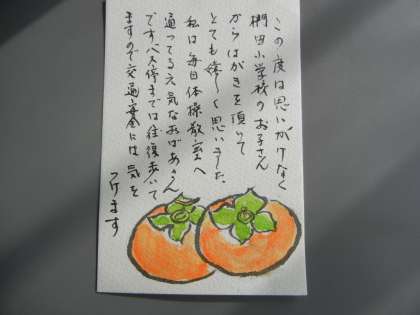 この度は思いがけなく
椚田小学校のお子さん
からはがきを頂いて
とても嬉しく思いました
私は毎日体操教室へ
通ってる元気なおばあさん
ですバス停までは往復歩いて
ますので交通安全には気を
つけます